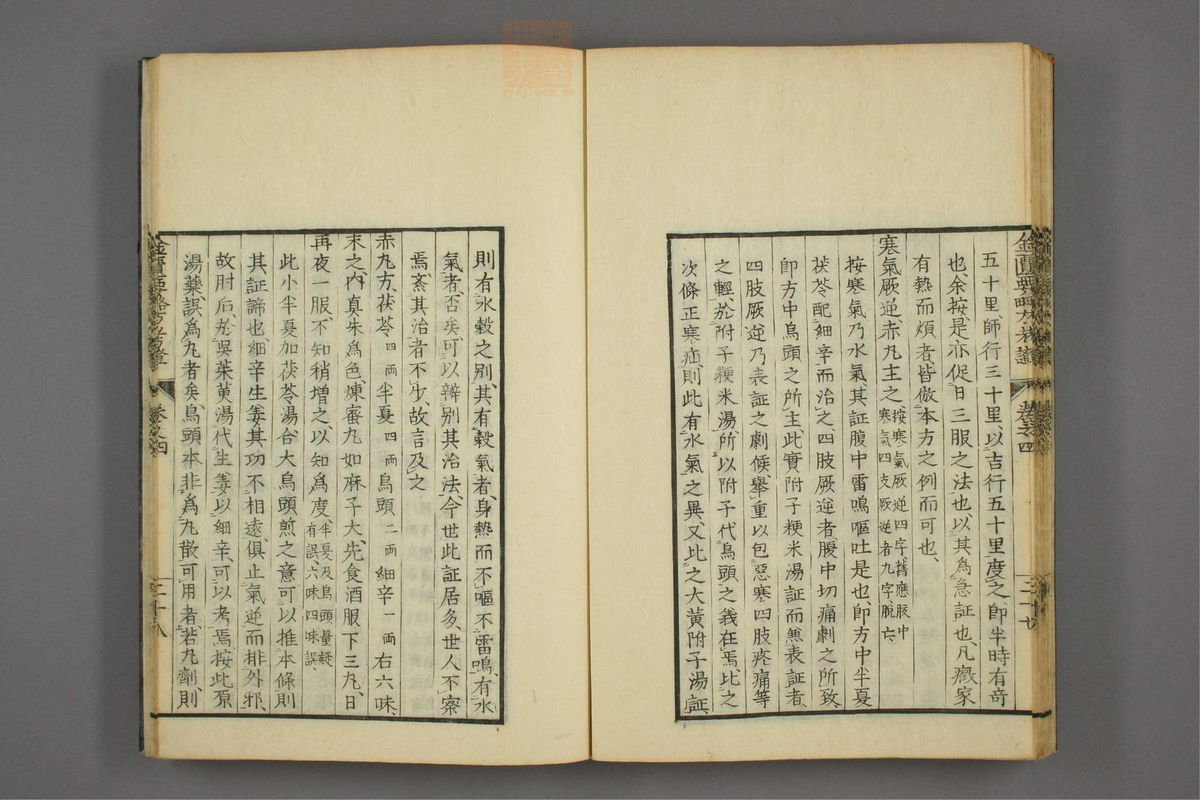 五十里、師行三十里、以吉行五十里度之卽半時有奇
也、余按、是亦促日三服之法也、以其爲急証也、凡癥家
有熱而煩者皆倣本方之例而可也、
寒氣厥逆赤丸主之
按寒氣厥逆四字、舊應腹中
寒氣四支厥逆者九字脫六、
按寒氣乃水氣其証腹中雷鳴嘔吐是也卽方中半夏
茯苓配細辛而治之四肢厥逆者腹中切痛劇之所致
卽方中烏頭之所主、此實附子粳米湯証而無表証者、
四肢厥逆乃表証之劇候、舉重以包惡寒四肢疼痛等
之輕、於附子粳米湯、所以附子代烏頭之義在焉、比之
次條正寒疝、則此有水氣之異、又比之大黃附子湯証、
則有水穀之別、其有穀氣者、身熱而不嘔不雷鳴、有水
氣者、否矣、可以辨別其治法、今世此証居多、世人不察
焉、紊其治者不少、故言及之
赤丸方、茯苓四両半夏四両烏頭二両細辛一両右六味、
末之、內真朱爲色、煉蜜丸如麻子大、先食酒服下三丸、日
再夜一服、不知稍增之、以知爲度、
半夏及烏頭量疑
有誤、六味四味誤
此小半夏加茯苓湯合大烏頭煎之意可以推本條則
其証諦也、細辛生姜其功不相遠、俱止氣逆而排外邪、
故肘后、於吳茱萸湯代生姜以細辛、可以考焉按此原
湯藥、誤爲丸者矣、烏頭本非爲丸散可用者、若丸劑、則
卷之四
三十七
卷之四
三十八